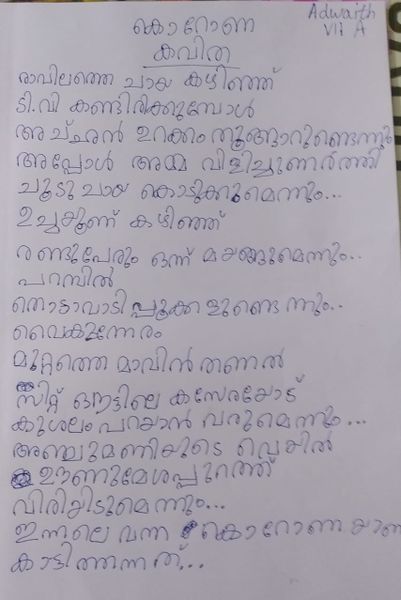 Adwaith
VII A
കൊറോണ
കവിത
രാവിലത്തെ ചായ കഴിഞ്ഞ്
ടി.വി കണ്ടിരിക്കുമ്പോൾ
അച്ഛൻ ഉറക്കം തൂങ്ങാറുണ്ടെന്നും
അപ്പോൾ അമ്മ വിളിച്ചുണർത്തി
ചൂടുചായ കൊടുക്കുമെന്നും...
ഉച്ചയൂണ് കഴിഞ്ഞ്
രണ്ടുപേരും ഒന്ന് മയങ്ങുമെന്നും..
പറമ്പിൽ
തൊട്ടാവാടിപ്പൂക്കളുണ്ടെന്നും..
വൈകുന്നേരം
മുറ്റത്തെ മാവിൻ തണൽ
സിറ്റ് ഔട്ടിലെ കസേരയോട്
കുശലം പറയാൻ വരുമെന്നും...
അഞ്ചുമണിയുടെ വെയിൽ
ഊണുമേശപ്പുറത്ത്
വിരിയിടുമെന്നും...
ഇന്നലെ വന്ന കൊറോണയാണ
കാട്ടിത്തന്നത്...